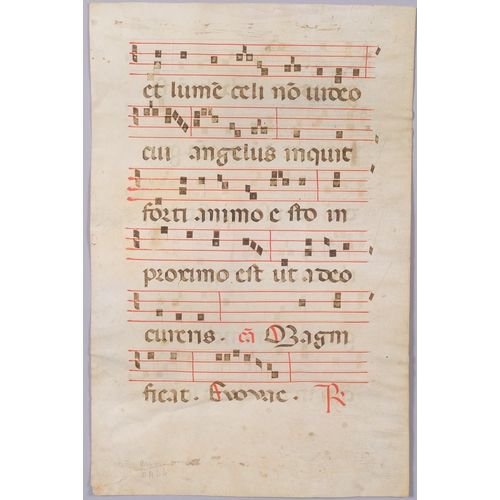 et lumē celi nō video
cui angelus inquit
forti animo e sto in
proximo est ut a deo
cureris. cā Magni
ficat. Evovae. R